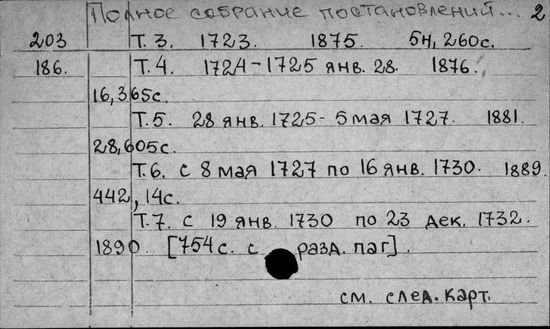 Полное собрание постановлений... 2
203 Т. 3. 1723. 1875. 5н, 260с.
186. Т. 4. 1724-1725 янв. 28. 1876.
16,365с.
Т. 5. 28 янв. 1725- 5 мая 1727. 1881.
28,605с.
Т. 6. с 8 мая 1727 по 16 янв. 1730. 1889.
442, 14с.
Т. 7. с 19 янв. 1730 по 23 дек. 1732.
1890. [754с. с разд. паг].
см. след. карт.